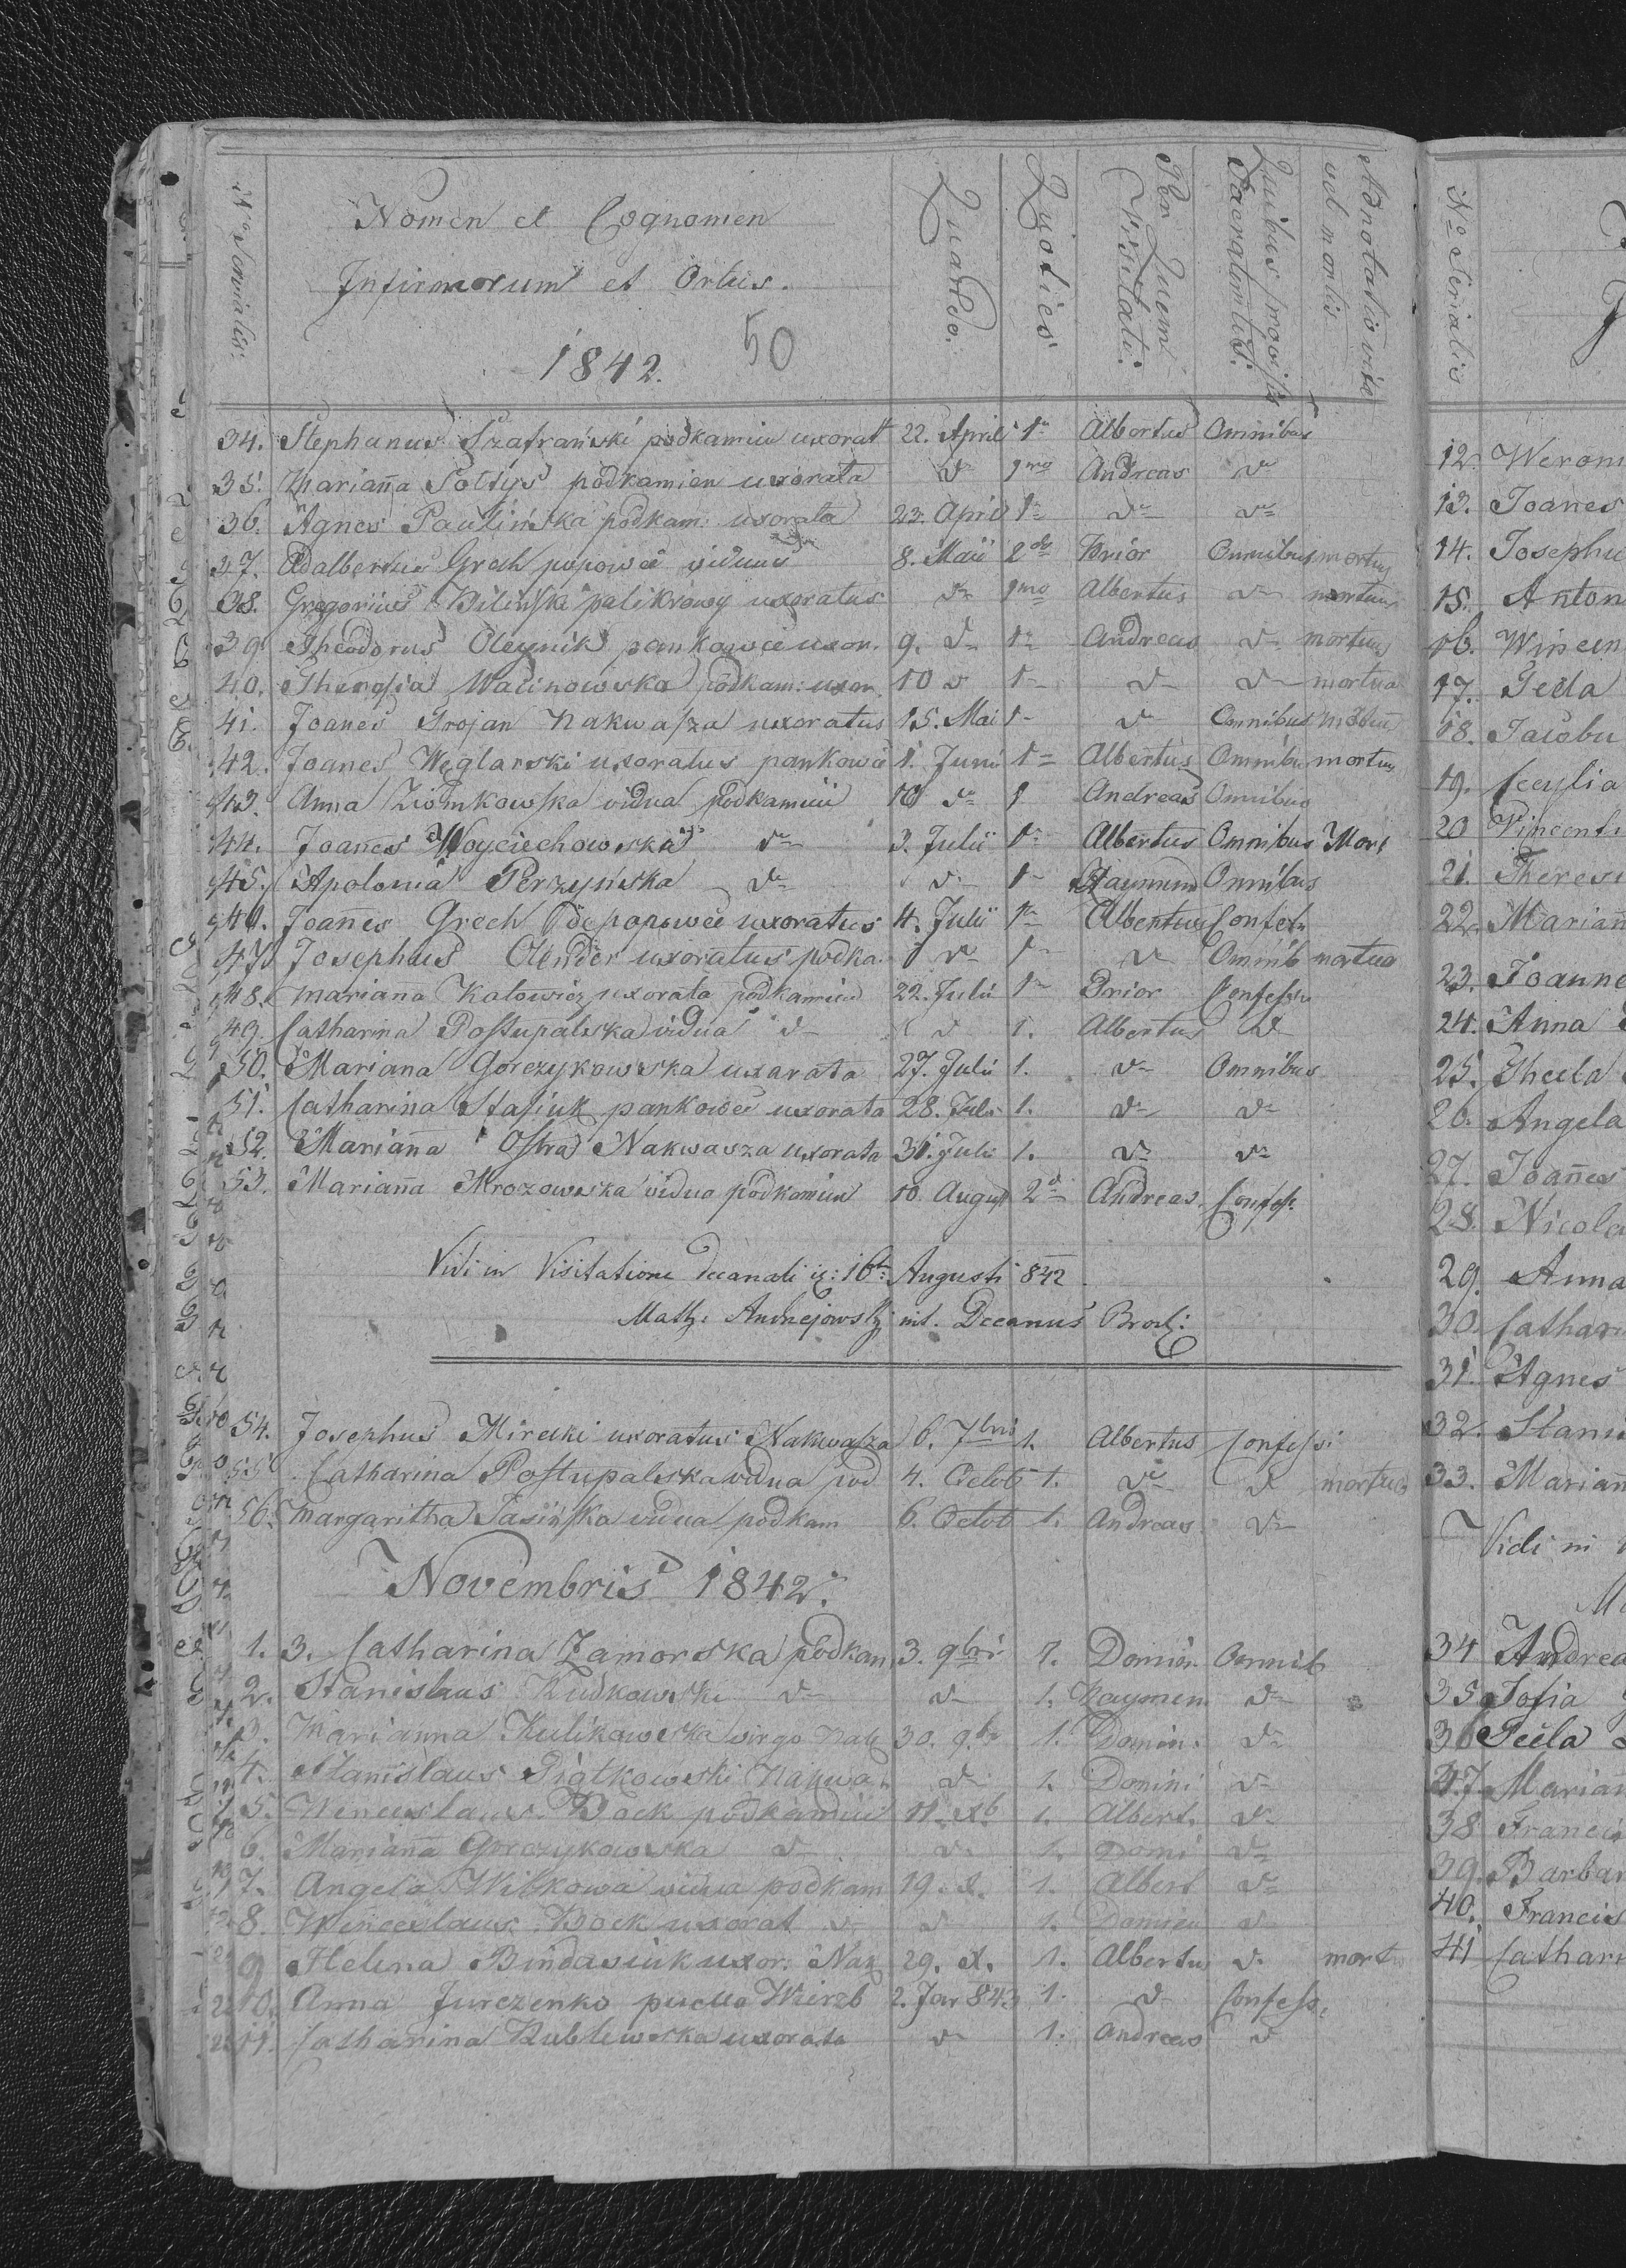 Nrus Serialis.
Nomen et Cognomen
Infirmorum et Ortus.
1842. 50
Quando.
Quoties
Per Quem Visitati:
Quibus provisi Sacramentis:
Adnotatio vitae vel mortis
34. Stephanus Szafrański podkamien uxorat 22. April 1= Albertus Omnibus
35. Marianna Soltys podkamien uxorata d= 1mo Andreas d=
36. Agnes Paulińska podkam: uxorata 23. April 1= d= d=
37. Adalbertus Grech popowce viduus 8. Maii 2do Prior Omnibus mortuus
38. Gregorius Biliński palikrowy uxoratus d= 1mo Albertus d= mortuus
39 Theodorus Oleynik pankowce uxor. 9. d= 1= Andreas d= mortuus
40. Theresia Malinowska podkam: uxor. 10 d 1= d= d= mortua
41. Joanes Trojan Nakwasza uxoratus 15. Mai 1= d= Omnibus mortuus
42. Joanes Węglarski uxoratus pankowce 1. Juni 1= Albertus Omnibus mortuus
43. Anna Ziomkowska vidua podkamien 10 d= 1 Andreas Omnibus
44. Joanes Woyciechowska d= 3. Julii 1= Albertus Omnibus Mort
45. Apolonia Perzyńska d= d= 1= Raymund Omnibus
46. Joannes Grech de popowce uxoratus 4. Julii 1= Albertus Confess
47. Josephus Olender uxoratus podka. d= 1= d= Omnib mortua
48. Marianna Katowicz uxorata podkamien 22. Julii 1= Prior Confessu
49. Catharina Postupalska vidua d= d 1. Albertus d=
50. Mariana Gorczykowska uxorata 27. Julii 1. d= Omnibus
51. Catharina Stasiuk pankowce uxorata 28. Juli 1. d= d=
52. Marianna Ostra Nakwasza uxorata 31. Juli 1. d= d=
53. Marianna Mrozowska vidua podkamien 10. August 2do Andreas. Confess.
Vidi in Visitatione decanali 16ta Augusti 842
Math: Andrzejowski mt. Decanus Brod:
54. Josephus Mirecki uxoratus Nakwasza 6. 7bris 1. Albertus Confessi
55. Catharina Postupalska vidua pod 4. Octob 1. d= d mortua
56. Margaritha Jasińska vidua podkam 6. Octob 1. Andreas d=
Novembris 1842.
1. 3. Catharina Zamorska podkam 3. 9bri 1. Domin. Omnib
2. Stanislaus Rudkowski d= d= 1. Raymun d=
3. Marianna Kulikowska virgo Nak 30. 9br 1. Domin. d=
4. Stanislaus Piątkowski Nakwa. d= 1. Domini d=
5. Wenceslaus Bock podkamien 11. xb. 1. Albert. d=
6. Marianna Gorczykowska d= d. 1. Domi d=
7. Angela Wilkowa vidua podkam 19. x. 1. Albert d=
8. Wenceslaus Bock uxorat d= d 1. Domin d
9 Helena Bindasiuk uxor. Nak 29. x. 1. Albertus d. mort
10. Anna Jurczenko puella Wierzb 2. Jar 843 1. d= Confess.
11. Catharina Rublewska uxorata d= 1. Andreas d
Nro Serialis
12. Weron
13. Joanes
14. Josephu
15. Anton
16. Wincen
17. Tecla
18. Jacobu
19. Cecylia
20 Vincenti
21. Theresi
22. Mariann
23. Joanne
24. Anna
25. Thecla
26. Angela
27. Joannes
28. Nicola
29. Anna
30. Cathari
31. Agnes
32. Stani
33. Mariann
Vidi in
34 Andrea
35 Sofia
36 Tecla
37 Mariann
38 Francis
39. Barbar
40. Francis
41 Cathari